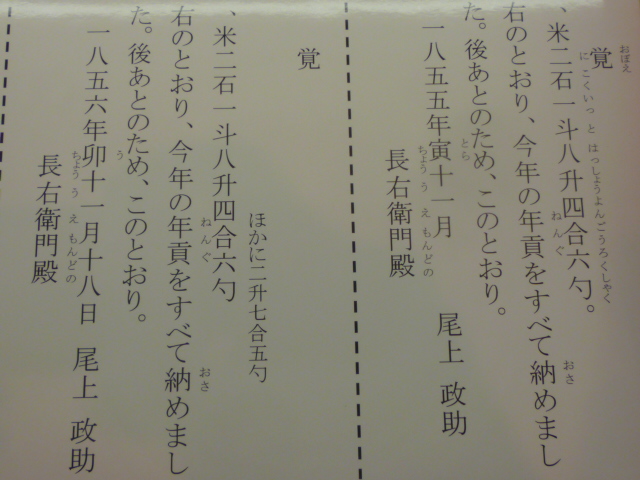 覚
、米二石一斗八升四合六勺。
右のとおり、今年の年貢をすべて納めまし
た。後あとのため、このとおり。
一八五五年寅十一月 尾上 政助
長右衛門殿
覚
ほかに二升七合五勺
、米二石一斗八升四合六勺
右のとおり、今年の年貢をすべて納めまし
た。後あとのため、このとおり。
一八五六年卯十一月十八日 尾上 政助
長右衛門殿